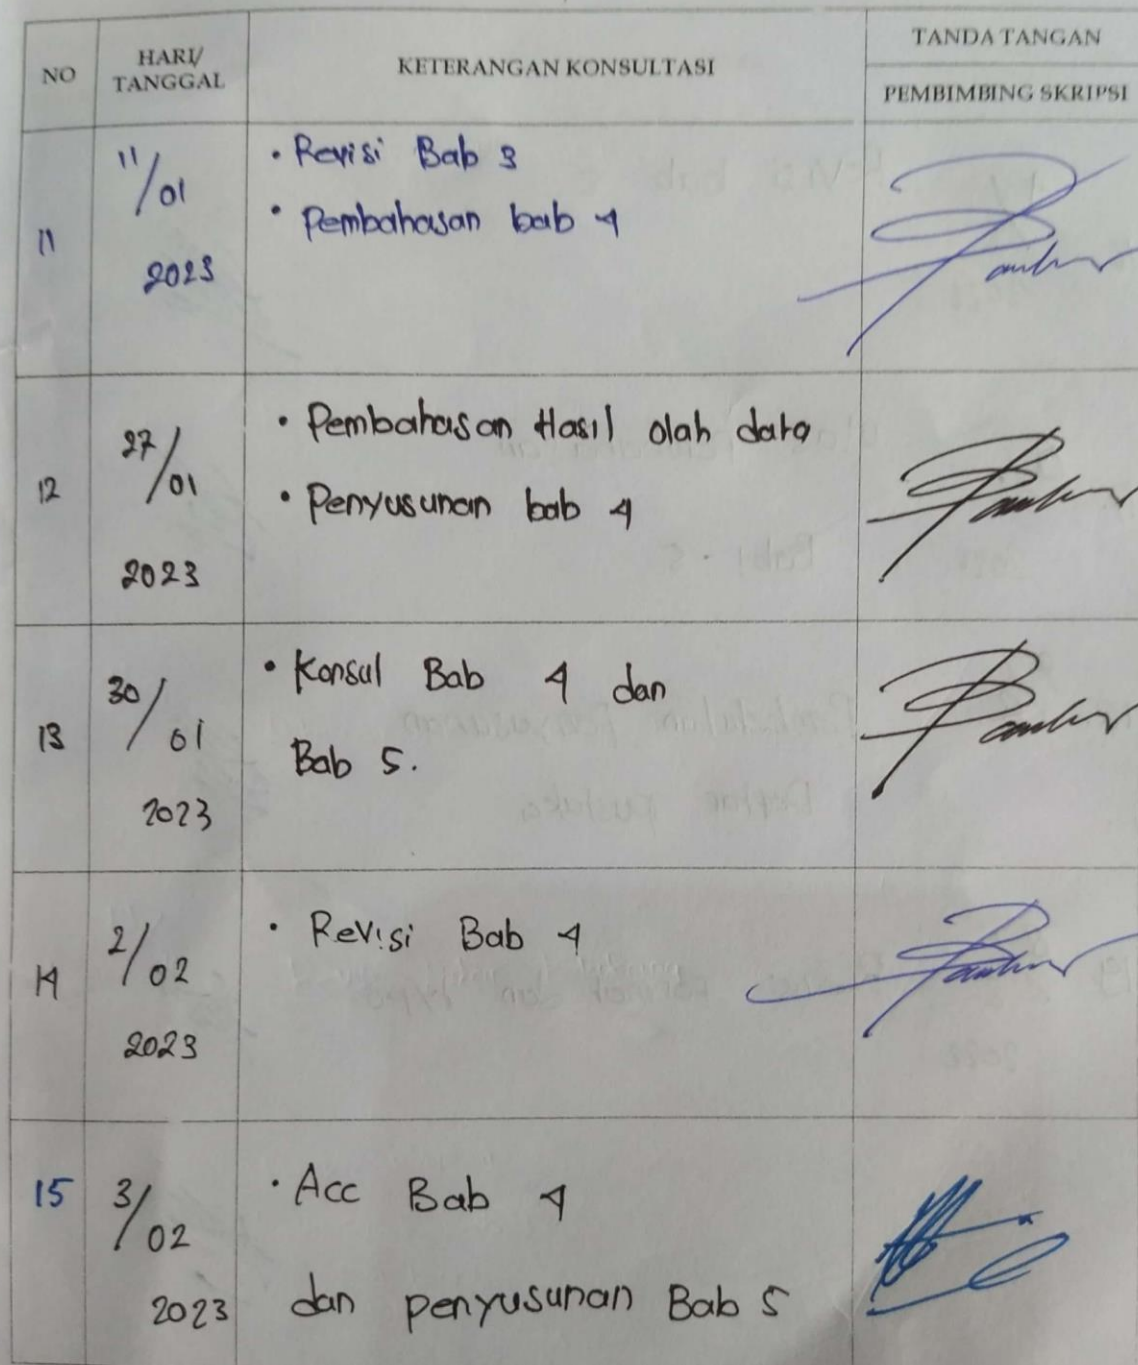 NO
HARI/
TANGGAL
KETERANGAN KONSULTASI
TANDA TANGAN
PEMBIMBING SKRIPSI
11
11/01
2023
• Revisi Bab 3
• Pembahasan bab 4
12
27/01
2023
• Pembahasan Hasil olah data
• Penyusunan bab 4
13
30/01
2023
• Konsul Bab 4 dan
Bab 5.
14
2/02
2023
• Revisi Bab 4
15
3/02
2023
• Acc Bab 4
dan penyusunan Bab 5